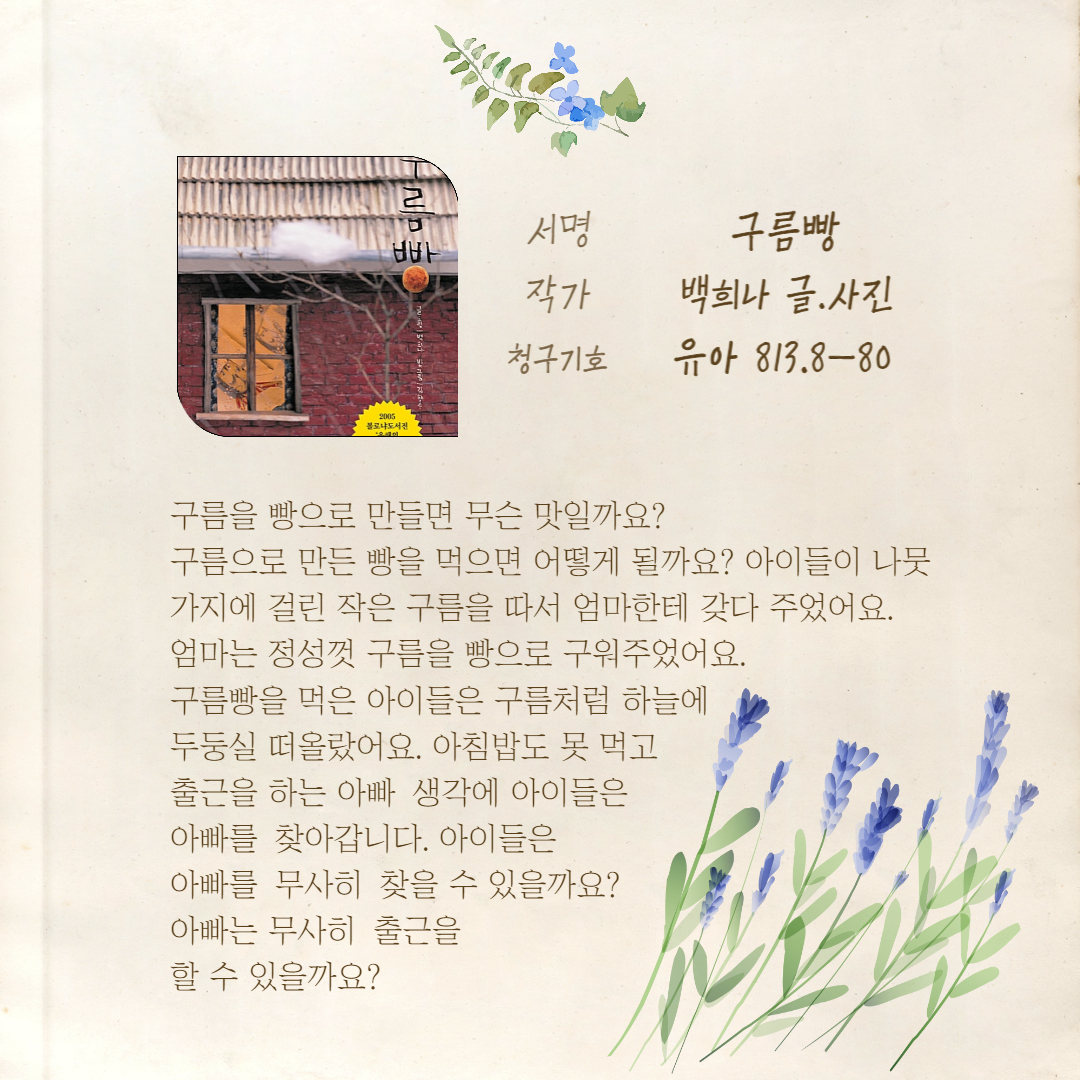 구름빵
2005
볼로냐도서전
서명 구름빵
작가 백희나 글.사진
청구기호 유아 813.8-80
구름을 빵으로 만들면 무슨 맛일까요?
구름으로 만든 빵을 먹으면 어떻게 될까요? 아이들이 나뭇
가지에 걸린 작은 구름을 따서 엄마한테 갖다 주었어요.
엄마는 정성껏 구름을 빵으로 구워주었어요.
구름빵을 먹은 아이들은 구름처럼 하늘에
두둥실 떠올랐어요. 아침밥도 못 먹고
출근을 하는 아빠 생각에 아이들은
아빠를 찾아갑니다. 아이들은
아빠를 무사히 찾을 수 있을까요?
아빠는 무사히 출근을
할 수 있을까요?